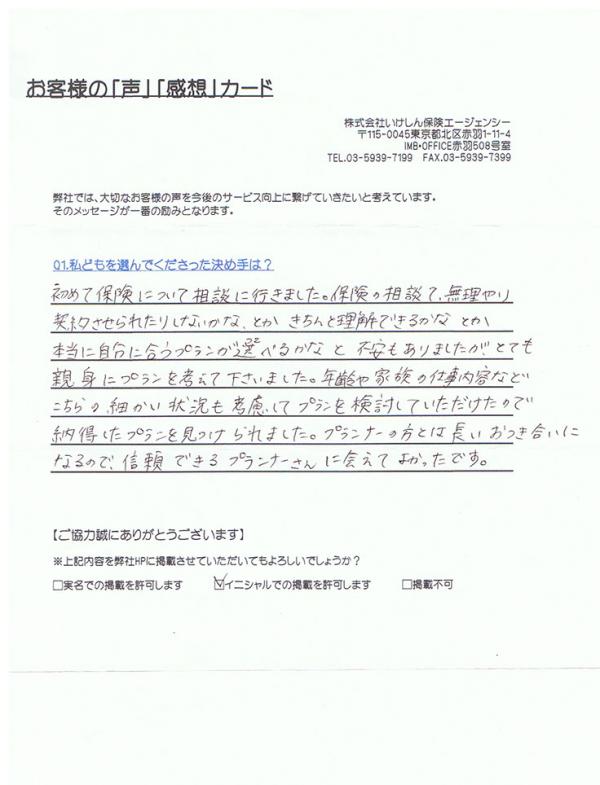 お客様の「声」「感想」カード
株式会社いけしん保険エージェンシー
〒115-0045東京都北区赤羽1-11-4
IMB・OFFICE赤羽508号室
TEL.03-5939-7199 FAX.03-5939-7399
弊社では、大切なお客様の声を今後のサービス向上に繋げていきたいと考えています。
そのメッセージが一番の励みとなります。
Q1.私どもを選んでくださった決め手は？
初めて保険について相談に行きました。保険の相談で、無理やり
契約させられたりしないかな、とか きちんと理解できるかな とか
本当に自分に合うプランが選べるかな と 不安もありましたが とても
親身にプランを考えて下さいました。年齢や家族の仕事内容など
こちらの細かい状況も考慮してプランを検討していただけたので
納得したプランを見つけられました。プランナーの方とは長いおつき合いに
なるので、信頼できるプランナーさんに会えてよかったです。
【ご協力誠にありがとうございます】
※上記内容を弊社HPに掲載させていただいてもよろしいでしょうか？
□実名での掲載を許可します ☑イニシャルでの掲載を許可します □掲載不可